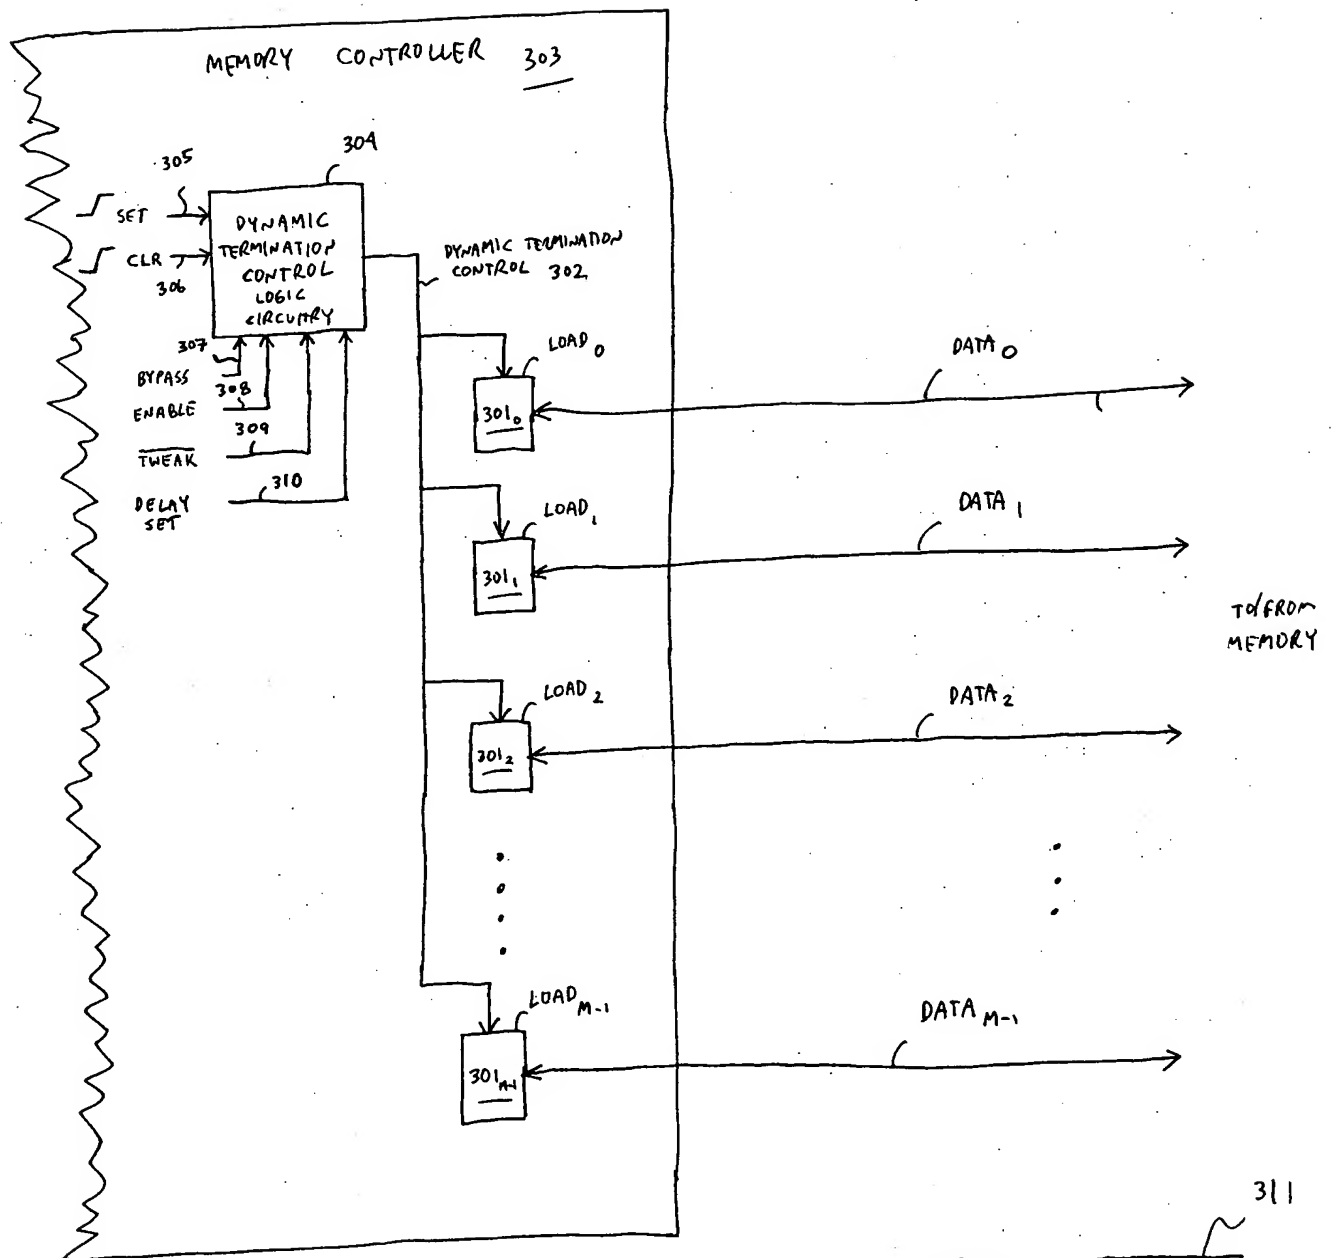 MEMORY CONTROLLER 303
304
305
SET
DYNAMIC
TERMINATION
CONTROL
LOGIC
CIRCUITRY
CLR
306
DYNAMIC TERMINATION
CONTROL 302
307
BYPASS
308
ENABLE
309
TWEAK
310
DELAY
SET
LOAD0
3010
DATA0
LOAD1
3011
DATA1
TO/FROM
MEMORY
LOAD2
3012
DATA2
LOADM-1
301M-1
DATAM-1
311